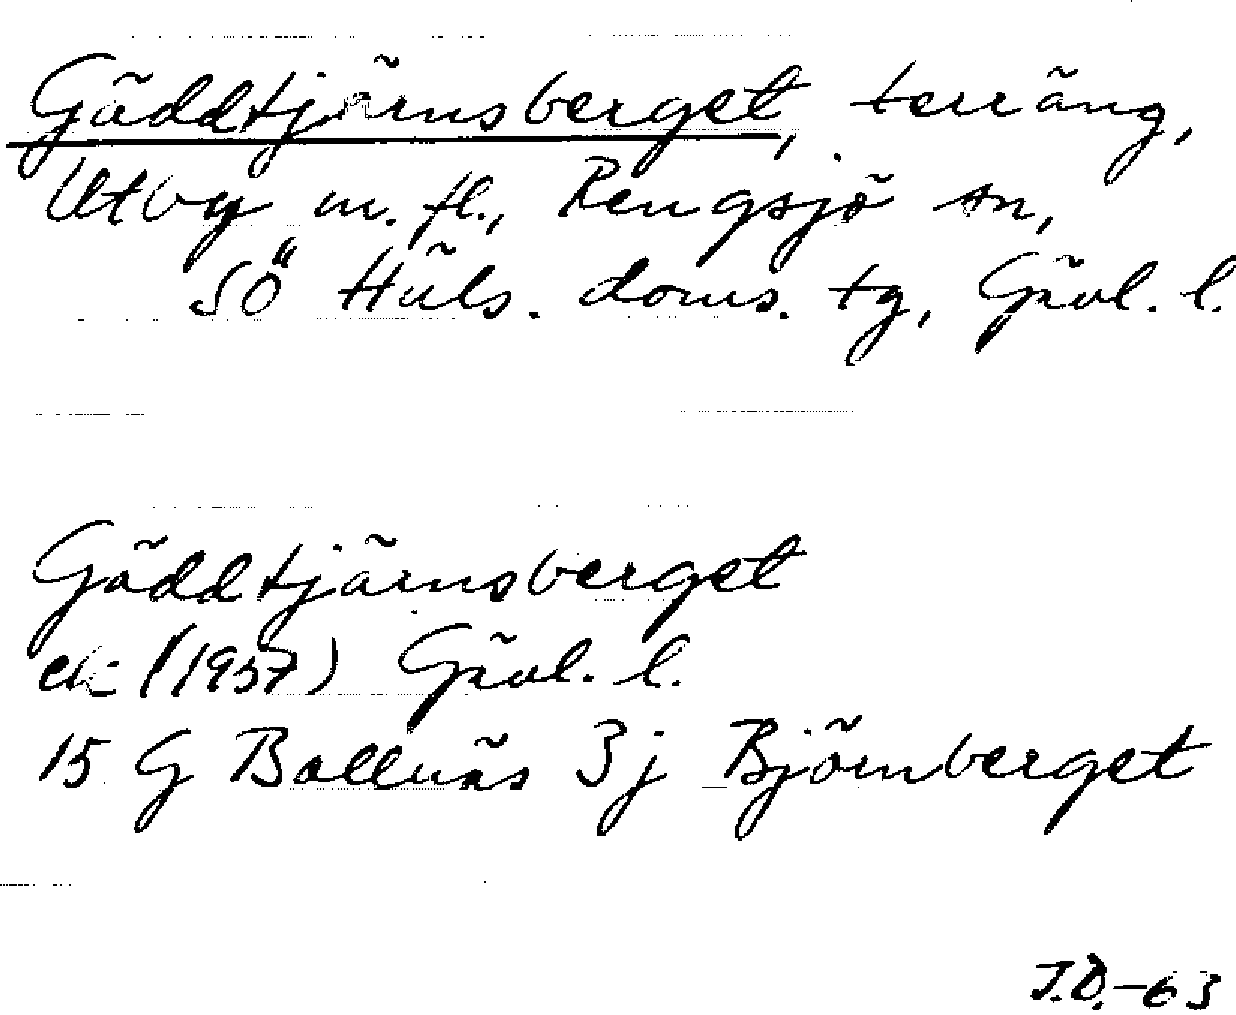 Gäddtjärnsberget, terräng,
Utby m.fl., Rengsjö sn,
SÖ Häls. doms. tg, Gävl. l.
Gäddtjärnsberget
ek (1957) Gävl. l.
15 G Bollnäs 3j Björnberget
J.D.-63